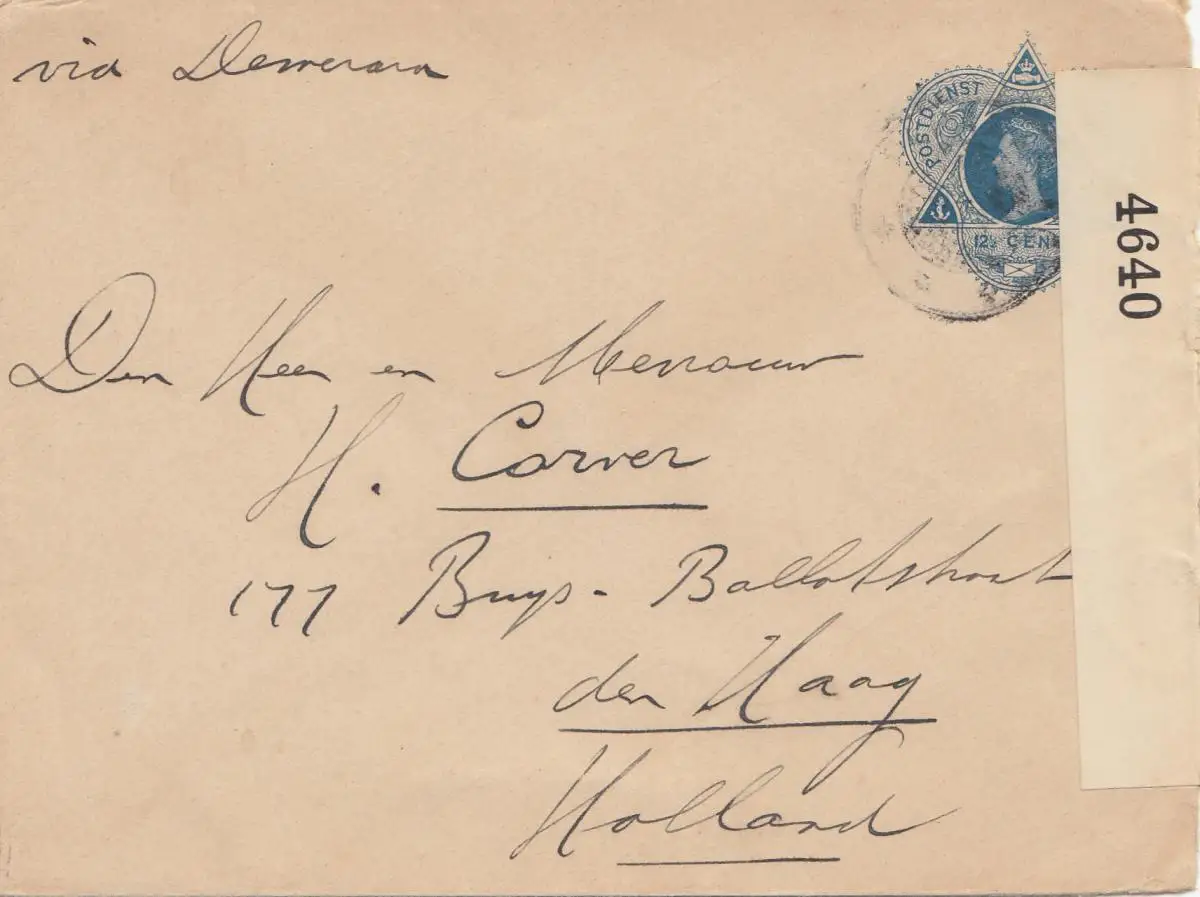 via Demerara
POSTDIENST
12½ CEN
4640
Den Heer en Mevrouw
H. Corver
177 Buys-Ballotstraat
den Haag
Holland